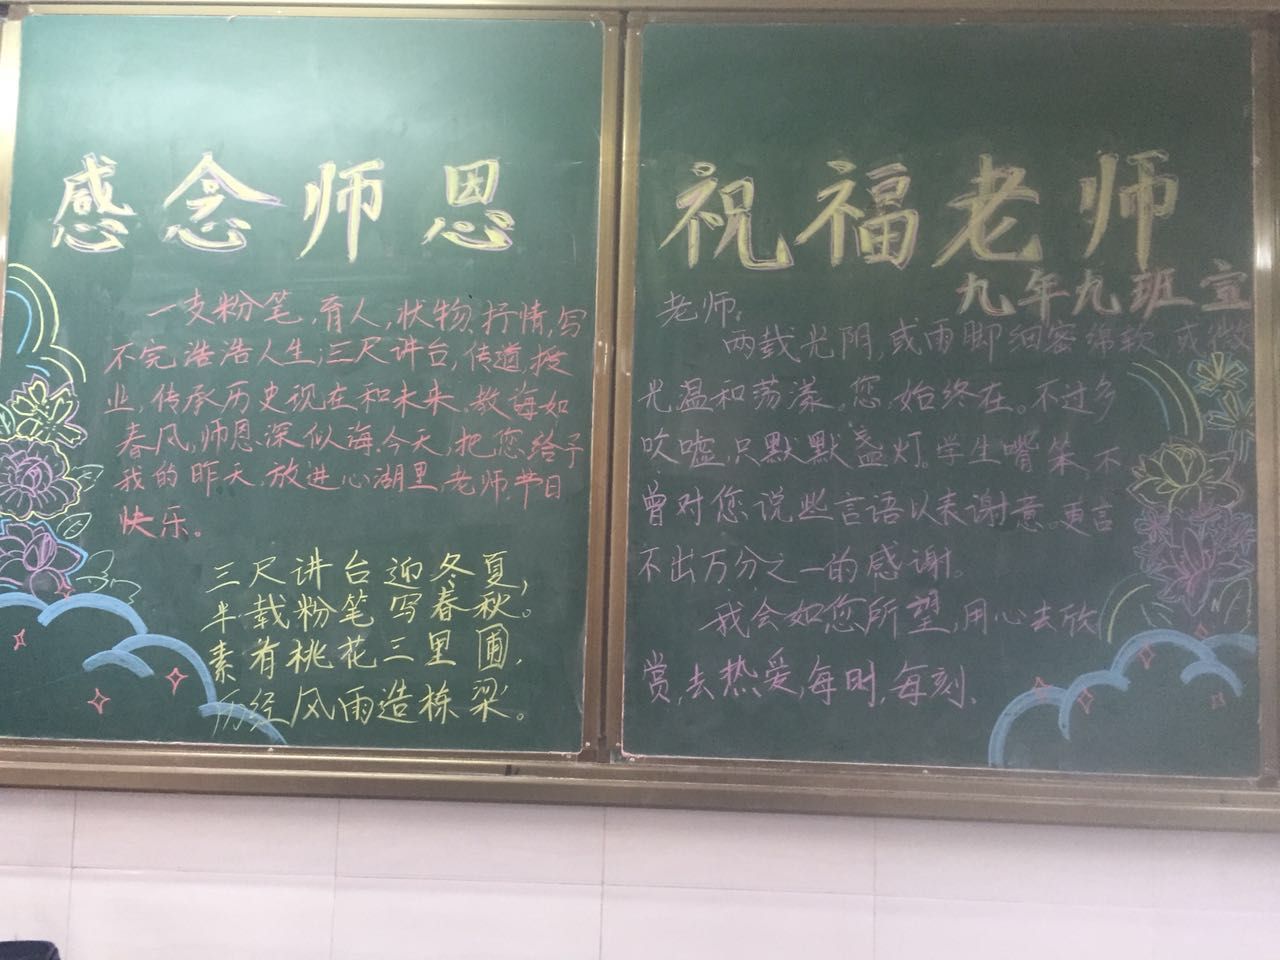 感念师恩
一支粉笔,育人,状物、抒情,写
不完浩浩人生;三尺讲台,传道,授
业,传承历史现在和未来。教诲如
春风,师恩深似海。今天,把您给予
我的昨天,放进心湖里,老师,节日
快乐。
三尺讲台迎冬夏,
半载粉笔写春秋。
素有桃花三里圃,
历经风雨造栋梁。
祝福老师
九年九班宣
老师,
两载光阴,或雨脚细密绵软,或微
光温和荡漾。您,始终在。不过多
吹嘘,只默默盏灯。学生嘴笨,不
曾对您说些言语以表谢意。更言
不出万分之一的感谢。
我会如您所望,用心去欣
赏,去热爱,每时,每刻、